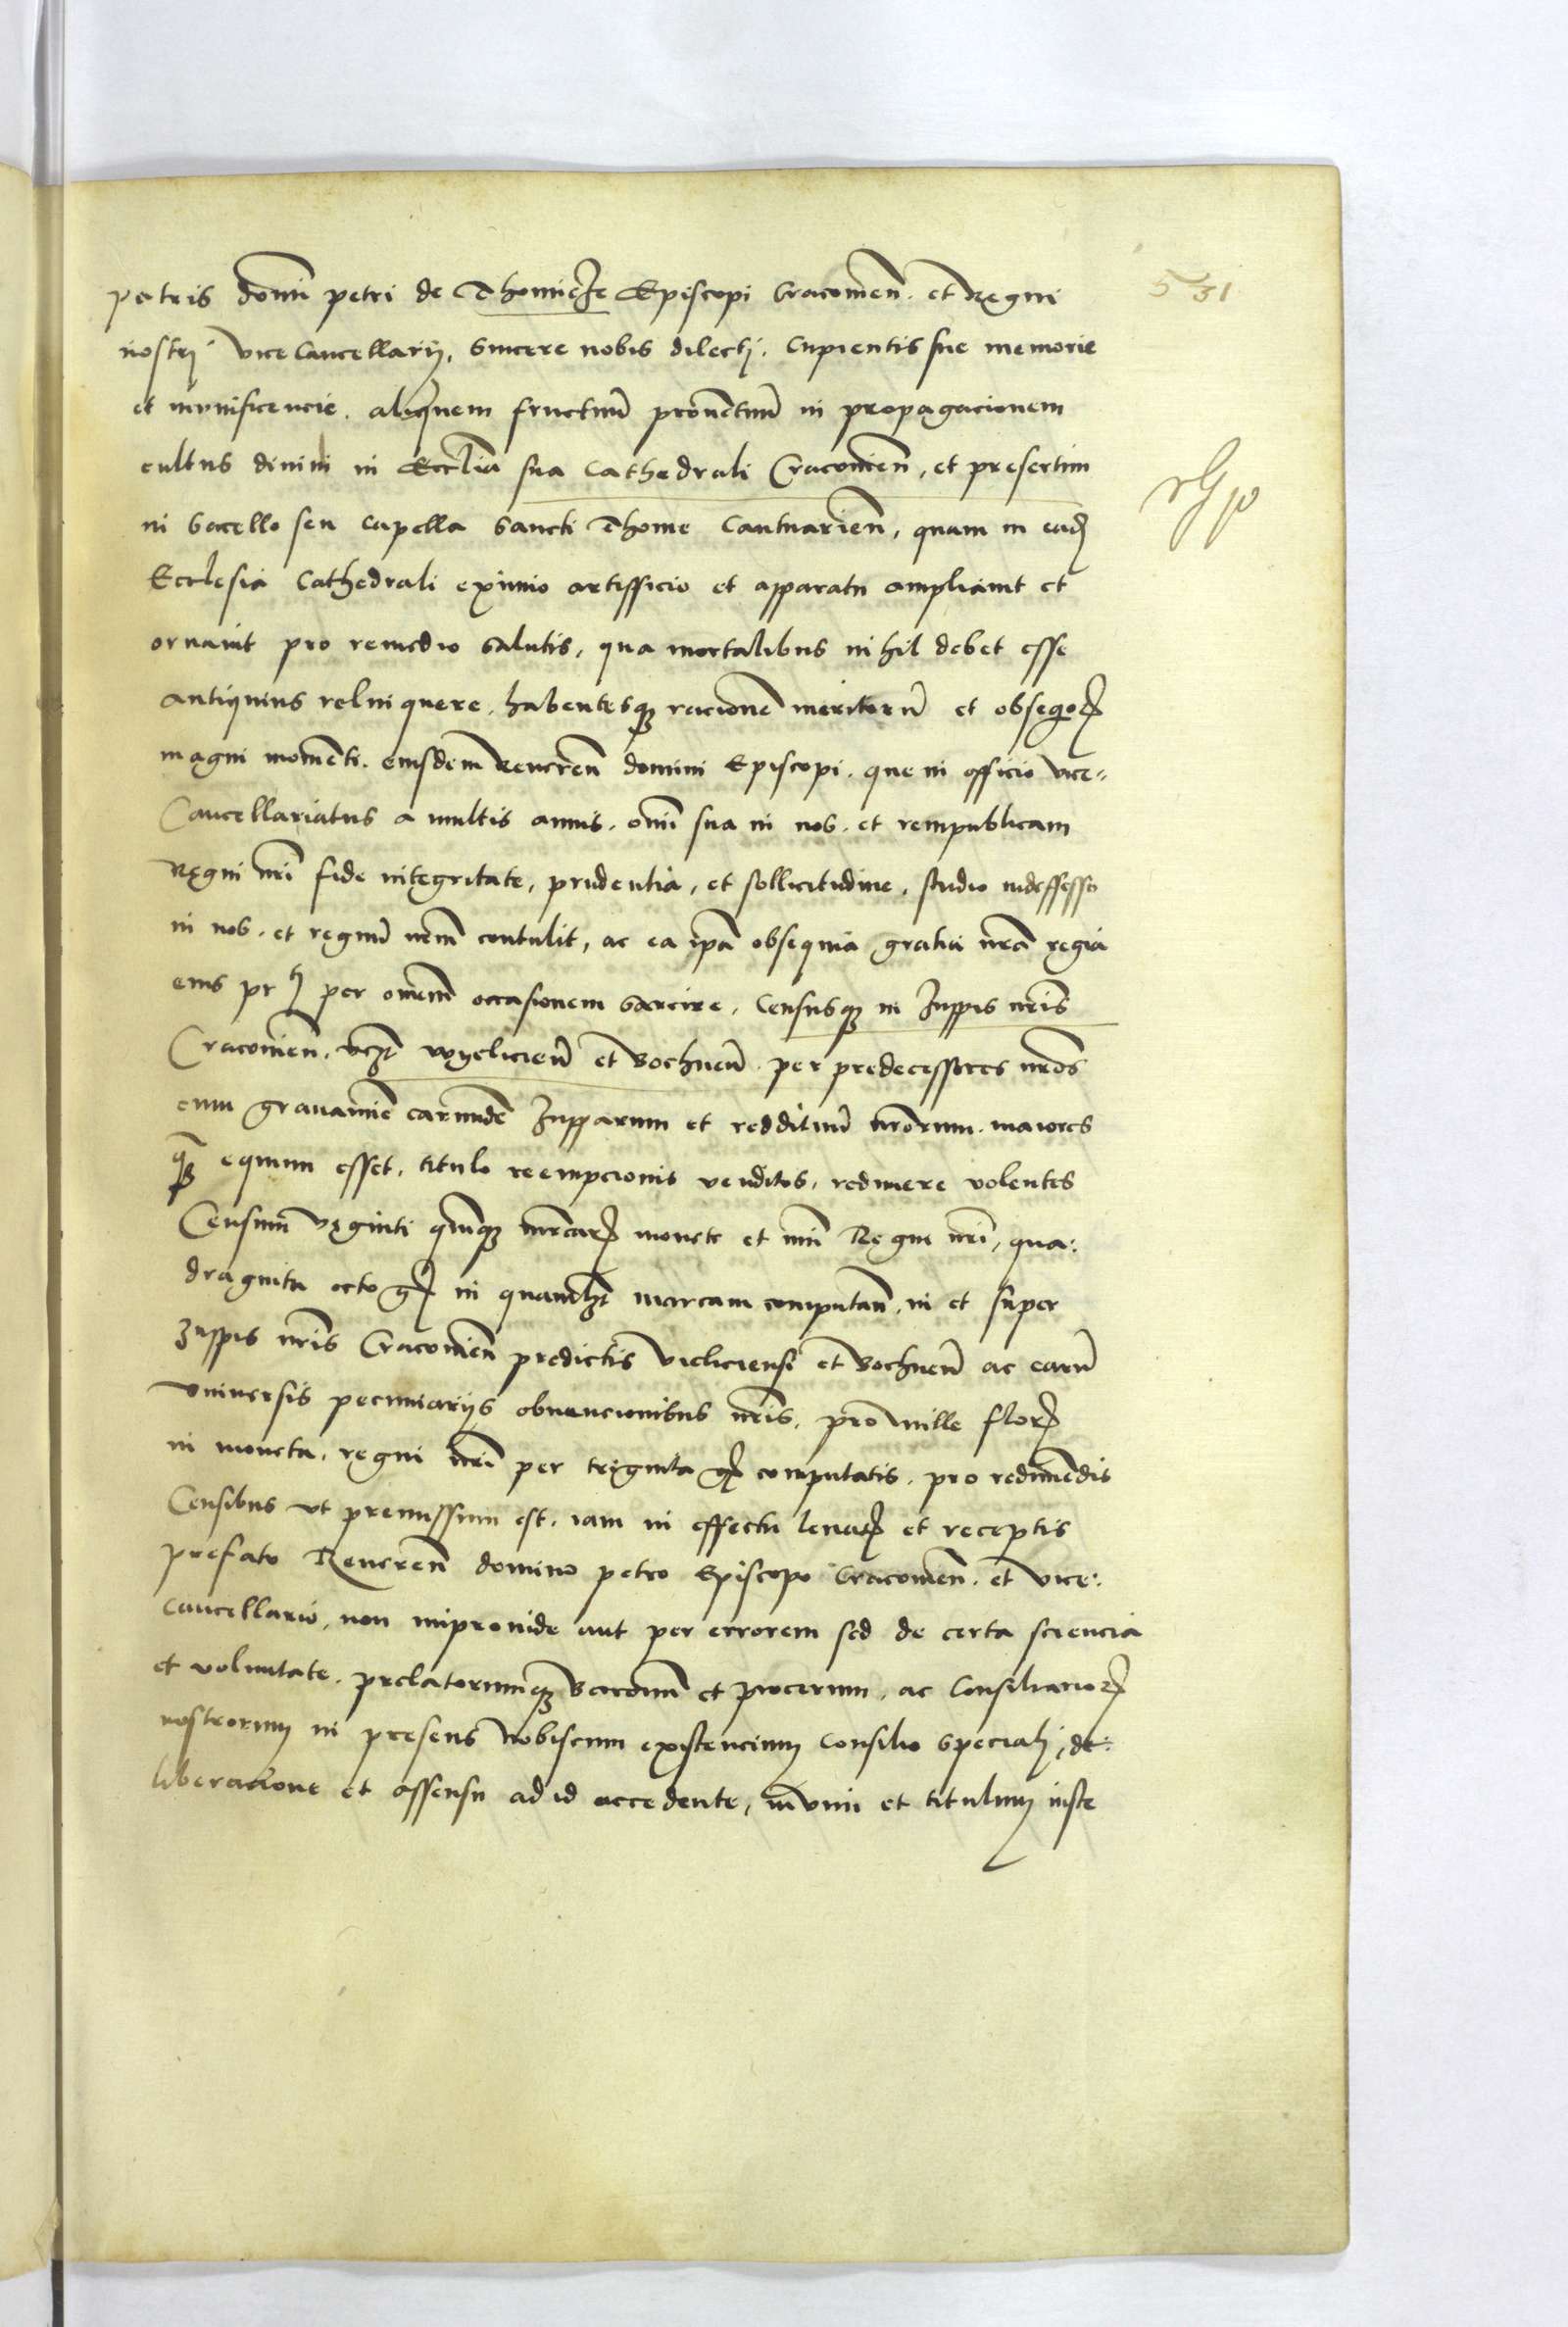 patris domī petri de Thomicze Episcopi Cracovien̄. et Regni
531
nostrj vice Cancellarij, Sincere nobis dilectj. Cupientis sue memorie
et mvnificencie. aliquem fructuū proventuū in propagacionem
cultus divini in Ecclīa sua Cathedrali Cracovien̄, et presertim
in Sacello seu Capella Sancti Thome Cantuarien̄, quam in eadę
Ecclesia Cathedrali eximio artifficio et apparatu ampliavit et
ornavit pro remedio Salutis, qua mortalibus nihil debet esse
antiquius relinquere. habentesqꝫ racionē meritorū et obsequioꝝ
magni momenti. eiusdem̄ Reveren̄ domini Episcopi. que in officio vice-
Cancellariatus a multis annis. omī sua in nos. et rempublicam
Regni nrī fide integritate, prudentia, et sollicitudine, studio indeffesso
in nos. et regnū nrm̄ contulit, ac ea ipā obsequia gratia nrā regia
eius pr tj per omnem̄ occasionem Sarcire. Censusqꝫ in Zuppis nrīs
Cracovien̄. vczt vyelicien̄ et Bochnen̄. per predecessores nrōs
cum gravamīe earundē Zupparum et reddituū nrōrum. maiores
qꝫ equum esset. titulo reempcionis venditos, redimere volentes
Censum̄ viginti quīqꝫ mrcarꝝ monete et nūi Regni nrī, qua:
draginta octo gꝝ in quamlꝫt marcam computan̄. in et super
Zuppis nrīs Cracovien̄ predictis vieliciensi et Bochnen̄ ac earū
vniversis pecuniarijs obvencionibus nrīs. pro mille florꝝ
in moneta. regni nrī per triginta gꝝ computatis. pro redimēdis
Censibus vt premissum est. iam in effectu levatꝝ et receptis
prefato Reveren̄ domino petro Episcopo Cracovien̄. et vice:
cancellario, non improvide aut per errorem sed de certa sciencia
et voluntate. prelatorumqꝫ Baronū et procerum. ac Consiliarioꝝ
nostrorum in presens nobiscum existencium Consilio Specialj, de:
liberacione et assensu ad id accedente, in vim et titulum iuste